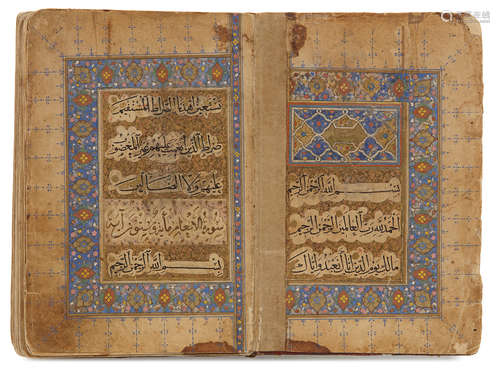 بسم الله الرحمن الرحيم
الحمد لله رب العالمين الرحمن الرحيم
مالك يوم الدين اياك نعبد واياك
نستعين اهدنا الصراط المستقيم
صراط الذين انعمت عليهم غير المغضوب
عليهم ولا الضالين
سورة الانعام مائة وستون آية
بسم الله الرحمن الرحيم